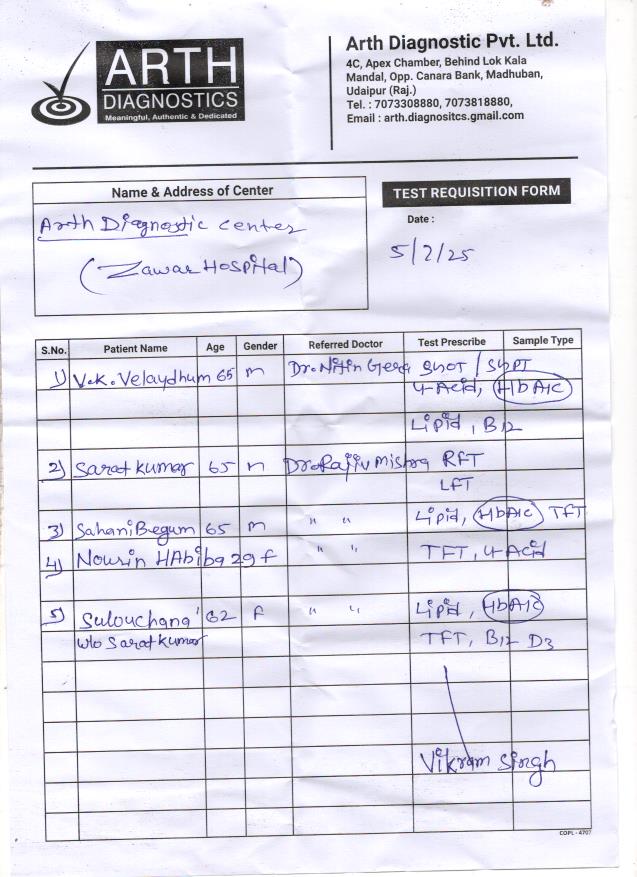 ARTH
DIAGNOSTICS
Meaningful, Authentic & Dedicated
Arth Diagnostic Pvt. Ltd.
4C, Apex Chamber, Behind Lok Kala
Mandal, Opp. Canara Bank, Madhuban,
Udaipur (Raj.)
Tel. : 7073308880, 7073818880,
Email : arth.diagnositcs.gmail.com
Name & Address of Center
Arth Diagnostic center
(Zawar Hospital)
TEST REQUISITION FORM
Date :
5/7/25
S.No. Patient Name Age Gender Referred Doctor Test Prescribe Sample Type
1) V.K. Velaydhum 65 m Dr. Nitin Geera SGOT / SGPT
U-Acid, HbA1C
Lipid, B12
2) Sarat Kumar 65 m Dr. Rajiv Mishra RFT
LFT
3) Sahani Begum 65 m " " Lipid, HbA1C TFT
4) Nourin HAbiba 29 f " " TFT, U-Acid
5) Sulouchana 62 F " " Lipid, HbA1C
w/o Sarat Kumar TFT, B12 D3
Vikram Singh
COPL - 4707